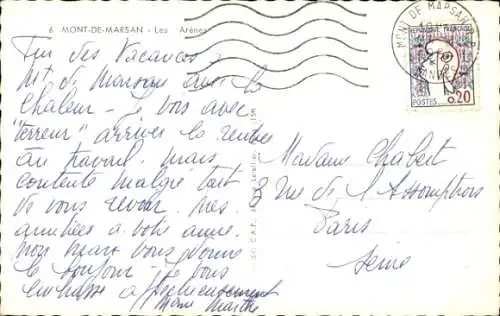 6 MONT-DE-MARSAN - Les Arènes
MONT DE MARSAN
REPUBLIQUE FRANÇAISE
POSTES 0,20
Fin des Vacances à
Mt de Marsan avec la
Chaleur - Je vois avec
"terreur" arriver la rentrée
au travail. Mais
contente malgré tout
de vous revoir. Mes
amitiés à votre
mon mari vous donne
le bonjour - Je vous
embrasse affectueusement
Marthe
Madame Chabert
2 Rue de l'Assomption
Paris
Seine